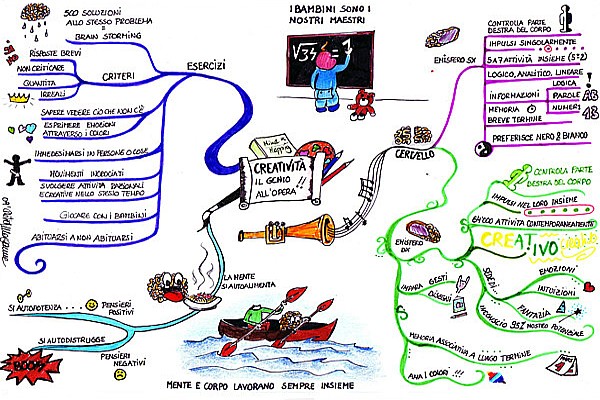 500 SOLUZIONI
ALLO STESSO PROBLEMA
=
BRAIN STORMING
RISPOSTE BREVI
NON CRITICARE
QUANTITÀ
IRREALI
CRITERI
ESERCIZI
SAPERE VEDERE CIÒ CHE NON C'È
ESPRIMERE EMOZIONI
ATTRAVERSO I COLORI
IMMEDESIMARSI IN PERSONE O COSE
MOVIMENTI INCROCIATI
SVOLGERE ATTIVITÀ RAZIONALI
E CREATIVE NELLO STESSO TEMPO
GIOCARE CON I BAMBINI
ABITUARSI A NON ABITUARSI
I BAMBINI SONO I
NOSTRI MAESTRI
√34 = 1
Mind
Mapping
CREATIVITÀ
IL GENIO
ALL'OPERA!!
LA MENTE
SI AUTOALIMENTA
SI AUTOPOTENZA
PENSIERI
POSITIVI
SI AUTODISTRUGGE
PENSIERI
NEGATIVI
BOOM
MENTE E CORPO LAVORANO SEMPRE INSIEME
CERVELLO
EMISFERO SX
CONTROLLA PARTE
DESTRA DEL CORPO
IMPULSI SINGOLARMENTE
5 A 7 ATTIVITÀ INSIEME (5±2)
LOGICO, ANALITICO, LINEARE
LOGICA
INFORMAZIONI
PAROLE
AB
MEMORIA
NUMERI
13
BREVE TERMINE
PREFERISCE NERO & BIANCO
EMISFERO
DX
CONTROLLA PARTE
DESTRA DEL CORPO
IMPULSI NEL LORO INSIEME
ATTIVITÀ CONTEMPORANEAMENTE
CREATIVO
IMPARA
GESTI
DISEGNI
SIEDE...
EMOZIONI
INTUIZIONI
FANTASIA
INCONSCIO 95% NOSTRO POTENZIALE
MEMORIA ASSOCIATIVA A LUNGO TERMINE
AMA I COLORI!!!